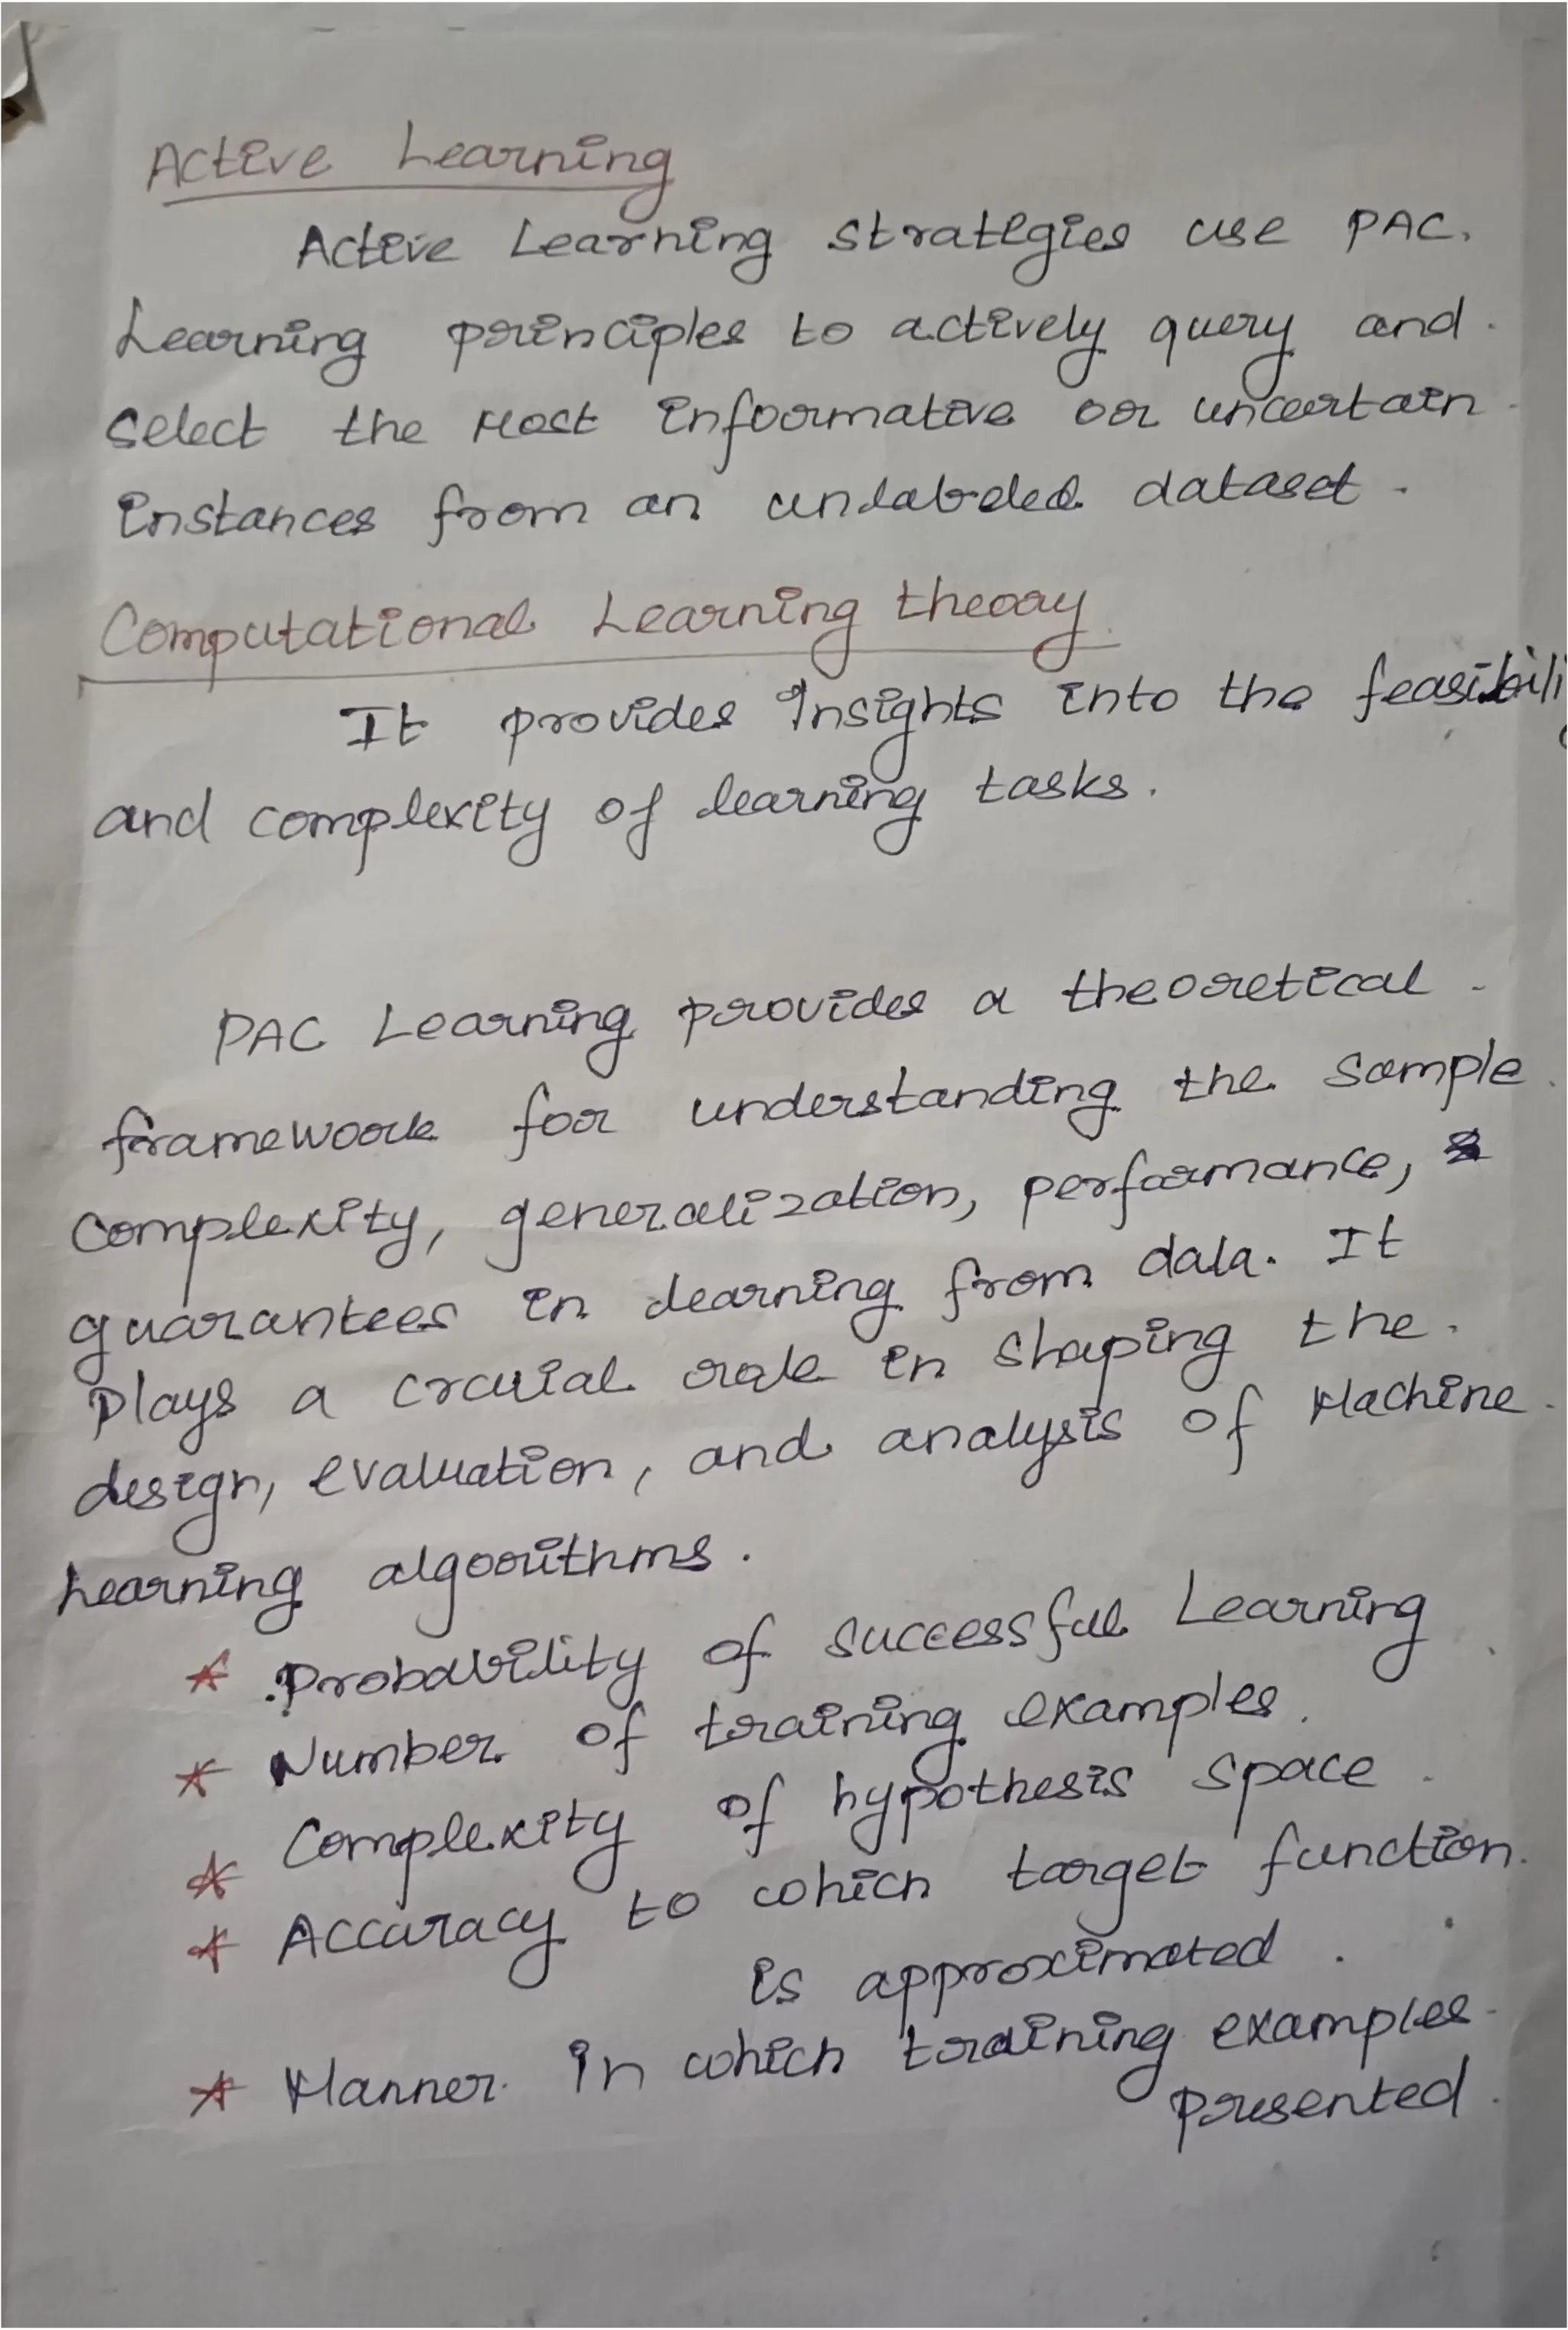 Active Learning
Active Learning strategies use PAC.
Learning principles to actively query and.
Select the Most informative or uncertain
instances from an unlabeled dataset.
Computational Learning theory.
It provides Insights into the feasibili
and complexity of learning tasks.
PAC Learning provides a theoretical
framework for understanding the Sample
Complexity, generalization, performance,
guarantees in learning from data. It
Plays a crucial role in shaping the.
design, evaluation, and analysis of Machine
Learning algorithms.
* Probability of successful Learning
* Number of training examples.
* Complexity of hypothesis space.
* Accuracy to which target function.
is approximated.
* Manner in which training examples
presented.